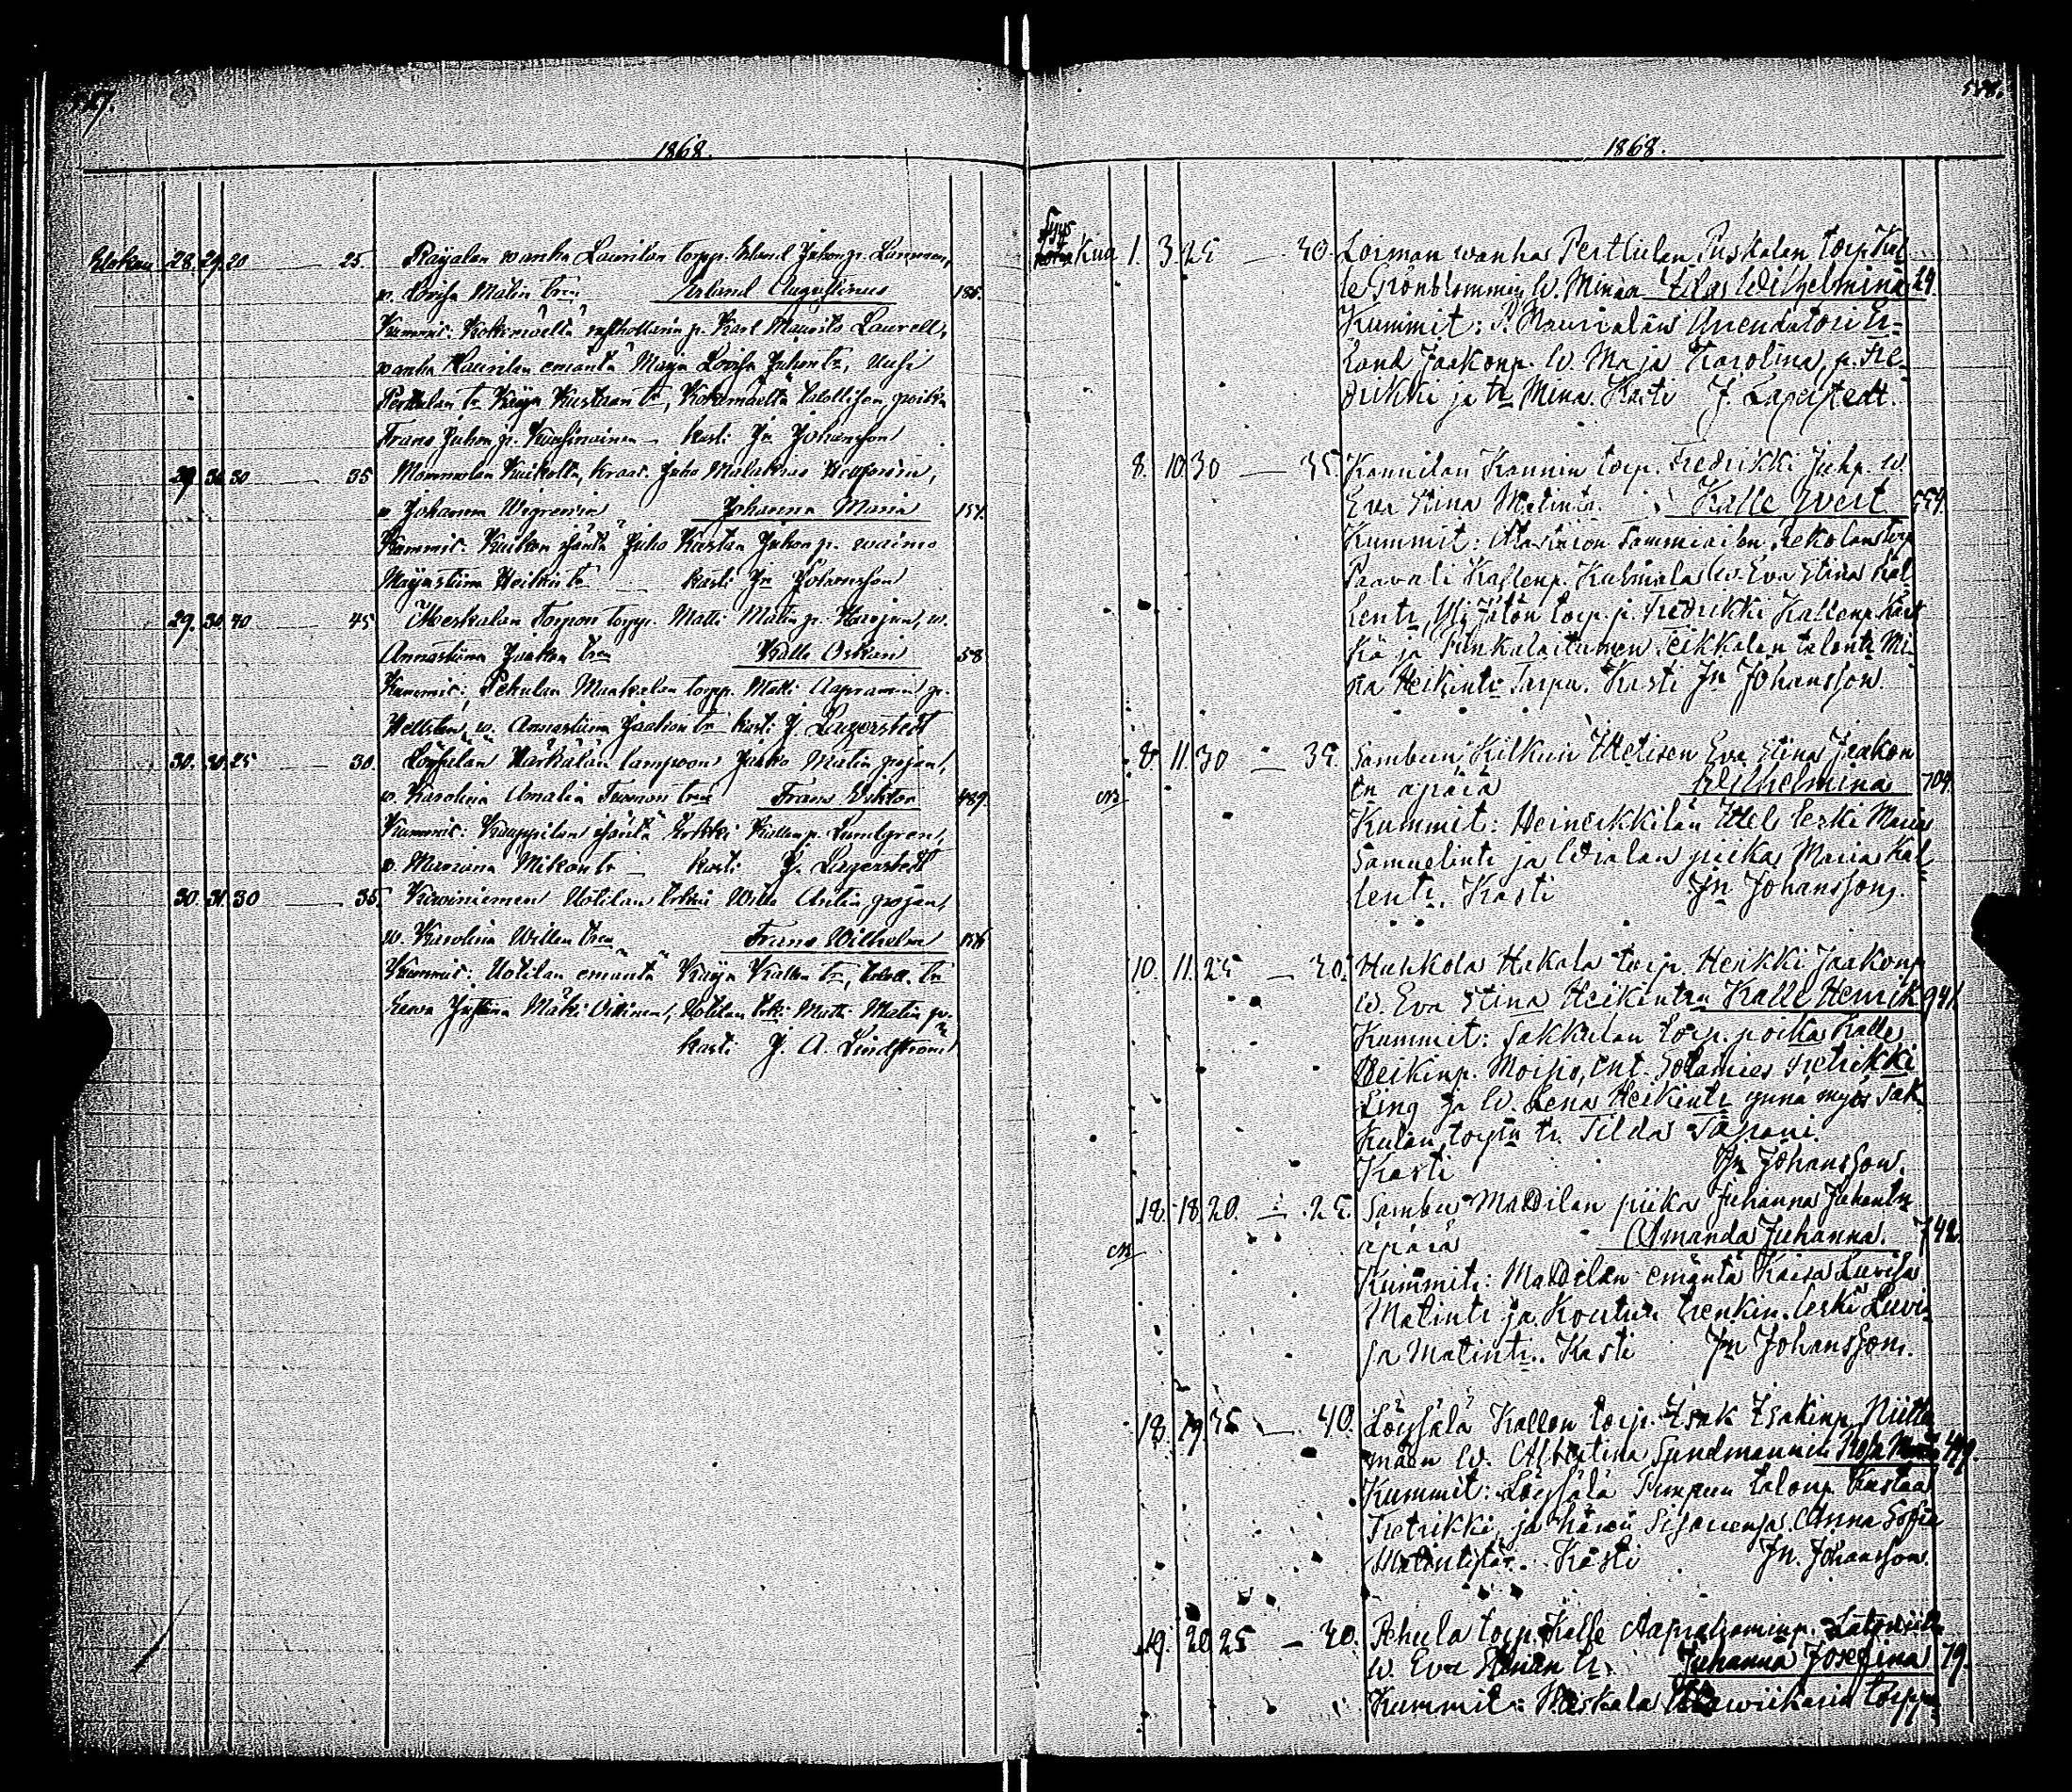 1868.
Elokuu 28. 29. 20 — 25. Raijalan wanha Laurilan torpp. Erland Juhonp. Lammen,
w. Lovisa Matin tren Erland Augustinus 186.
Kummit: Kokemäeltä rusthollarin p. Karl Maurits Laurell,
wanha Laurilan emäntä Maija Lovisa Juhon tr, Uusi
Perttulan tr Kaija Kustaan tr, Kokemäeltä talollisen poika
Frans Juhon p. Kuusinainen — kasti Jn Johansson
29. 30. 30 35 Mommolan Kuikolta, kraat. Juho Malakias
w. Johanna Wigrenin Johanna Maria 151.
Kummit: Kuikon isäntä Juho Kustan Juhon p. waimo
Maijastiina Heikin tr — kasti Jn Johansson
29. 30. 40 — 45 torpp. Matti Matin p. w.
Annastiina Jaakon tren Kalle Oskari 58
Kummit: Pehulan Markulan torpp. Matti Aapramin p.
Hellsten, w. Annastiina Jaakon tr kasti J. Lagerstedt
30. 30. 25 — 30. Löysälän Härkälän lampuon Jaako Matin pojan,
w. Karolina Amalia Tuomon tren Frans Viktor 489.
Kummit: Kauppilan isäntä Erkki Kallen p. Lundgren,
w. Mariana Mikon tr — kasti J. Lagerstedt
30. 31. 30 — 35. Kiwiniemen Uotilan Wille Antin pojan,
w. Karolina Willen tren Frans Wilhelm 156
Kummit: Uotilan emäntä Kaija Kallen tr, taloll. tr
Eewa Justina Mäki Uotilan Matti Matin p.
kasti J. A. Lindström
1868.
Syys
kua 1. 3. 25 — 30. Loiman wanha Perttulan Puskalan torp. Kal
le Grönblommin w. Minan Edla Wilhelmina 24.
Kummit: P. Maurialan Arendatori Er=
land Jaakonp. w. Maja Karolina, p. Fre=
drikki ja tr. Mina. Kasti J. Lagerstedt.
8. 10. 30 — 35. Kannilan Kannin torp. Fredrikki Juhp. w.
Eva Stina Matintr. Kalle Ivert 554.
Kummit:
Paavali Kallenp. w. Eva Stina Kal
lentr, Yli torp. p. Fredrikki Kallenp.
kä ja talontr Mi
na Heikintr Kasti Jn Johansson.
8 11. 30 — 35. Sambun Kilkun Itellisen Eva Stina Jaakon
tn äpärä Wilhelmina 704.
Kummit: Heinerikkilän Ittel. leski Maria
Samuelintr ja piika Maria Kal
lentr. Kasti Jn Johansson.
10. 11. 25 — 30. Huhkola Hakala torp. Heikki Jaakonp.
w. Eva Stina Heikintrn Kalle Henrik 941.
Kummit: Sakkulan torp. poika Kalle
Heikinp. Moisio, ent. Sotamies Fretrikki
Ling ja w. Lena Heikintr ynnä myös Sak
kulan torpn tr. Tilda Tapani.
Kasti Jn Johansson.
18. 18. 20. — 25. Sambu Mattilan piika Juhanna Juhantr.
äpärä Amanda Juhanna. 742.
Kummit: Mattilan emäntä Kaisa Luvisa
Matintr ja trenkin leski Luvi=
sa Matintr. Kasti Jn Johansson.
18. 19 35 — 40. Löysälä Kallon torp. Isak Isakinp. Niittu
mäen w. Albertina Sundmannin 499.
Kummit: Löysälä Pumpun talonp. Kustaa
Fretrikki ja hänen Sisarensa Anna Sofia
Kasti Jn. Johansson.
19. 20 25 — 30. Pehula torp. Kalle Aaprahaminp.
w. Eva Juhanna Josefina 79.
Kummit: